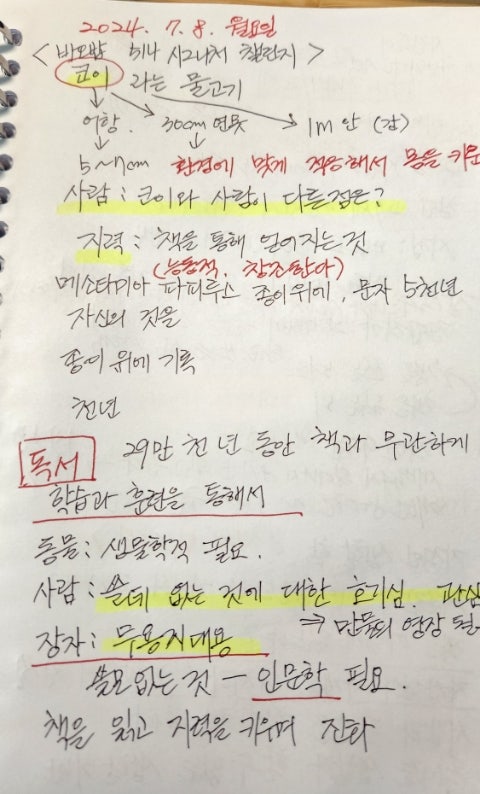 2024. 7. 8. 월요일
< 바오밥 시그니처 챌린지 >
코이 라는 물고기
어항. 30cm 연못 1m 안 (강)
5~7cm 환경에 맞게 적응해서 몸을 키운
사람 : 코이와 사람이 다른점은?
지력 : 책을 통해 얻어지는것
(능동적, 창조한다)
메소타미아 파피루스 종이위에, 문자 5천년
자신의 것을
종이 위에 기록
천년
독서 29만 천 년 동안 책과 무관하게
학습과 훈련을 통해서
동물: 생물학적 필요.
사람: 쓸데 없는 것에 대한 호기심. 관심
⇒ 만물의 영장 될
장자: 무용지대용
쓸모없는 것 - 인문학 필요.
책을 읽고 지력을 키우며 진화